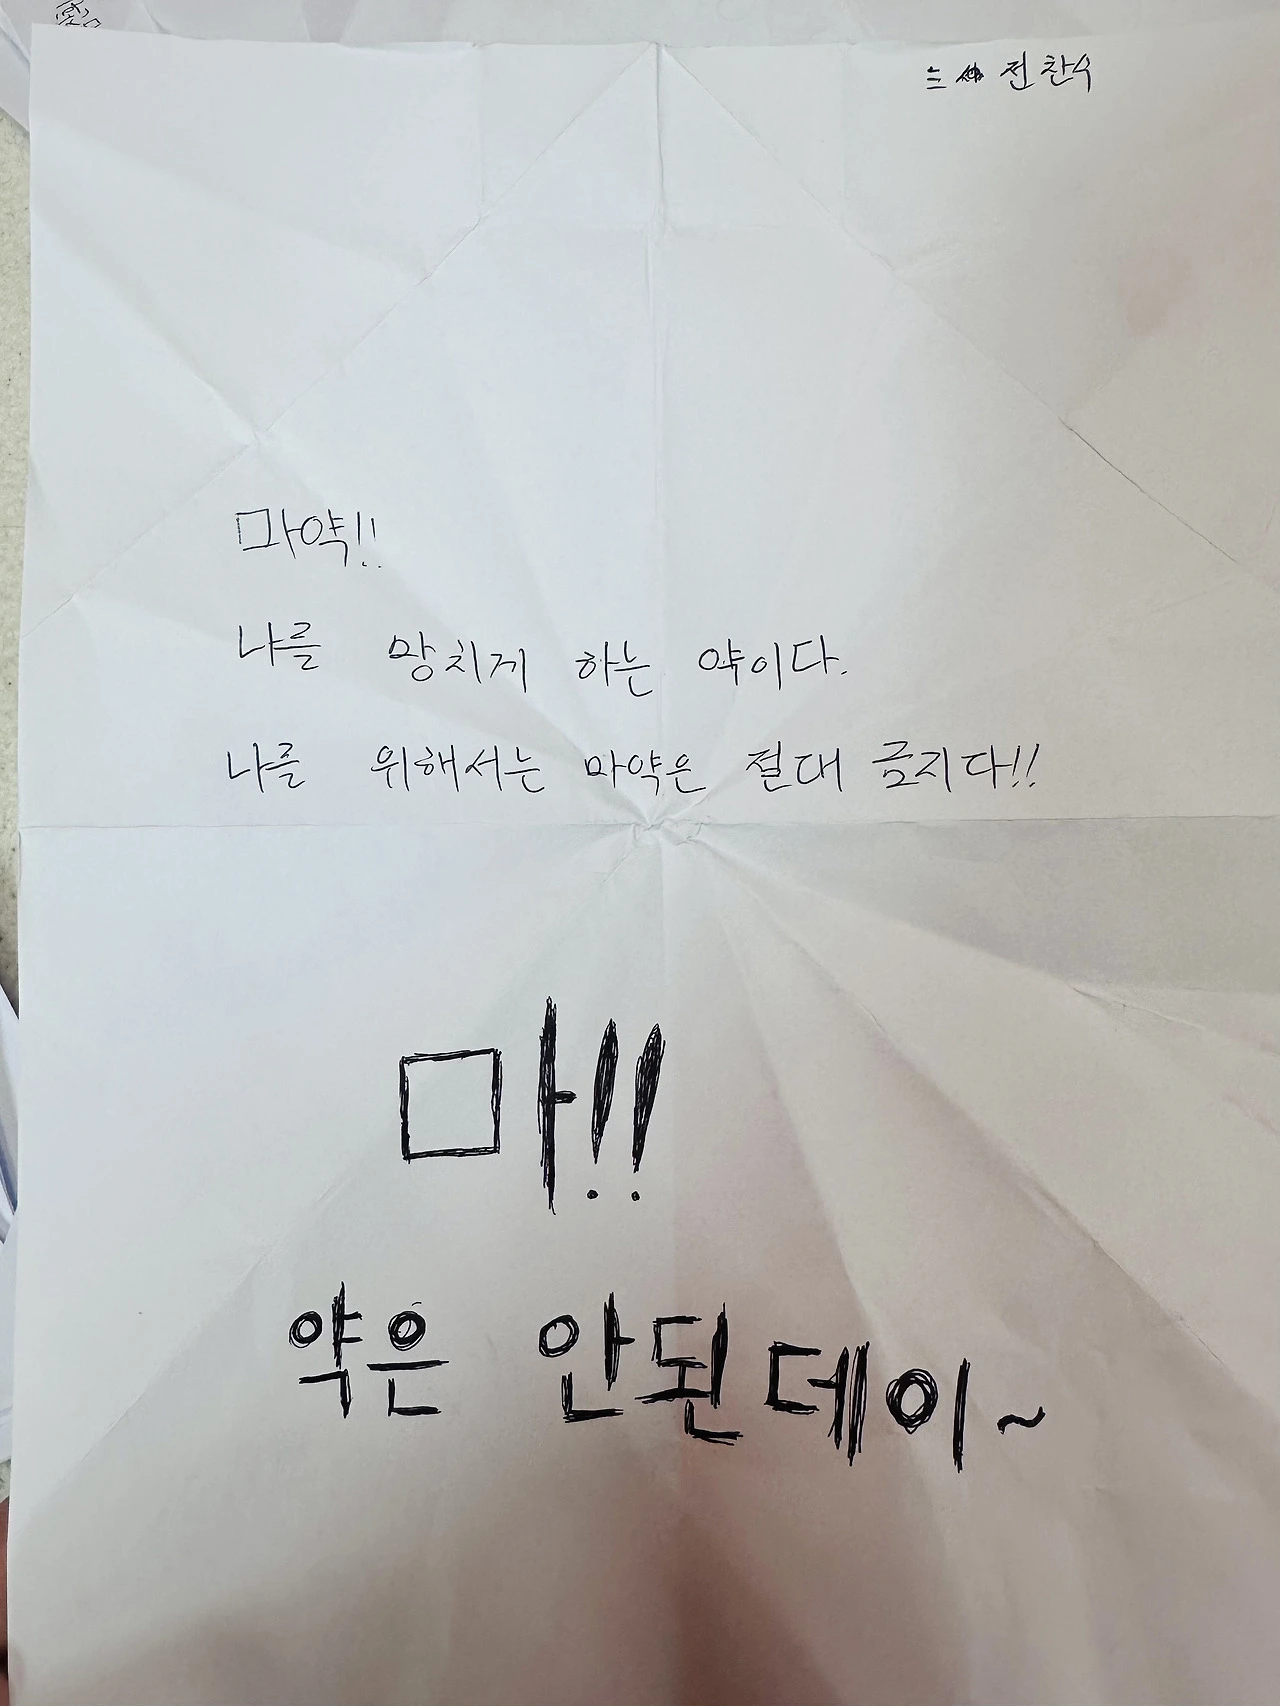 전찬우
마약!!
나를 망치게 하는 약이다.
나를 위해서는 마약은 절대 금지다!!
마!!
약은 안된데이~